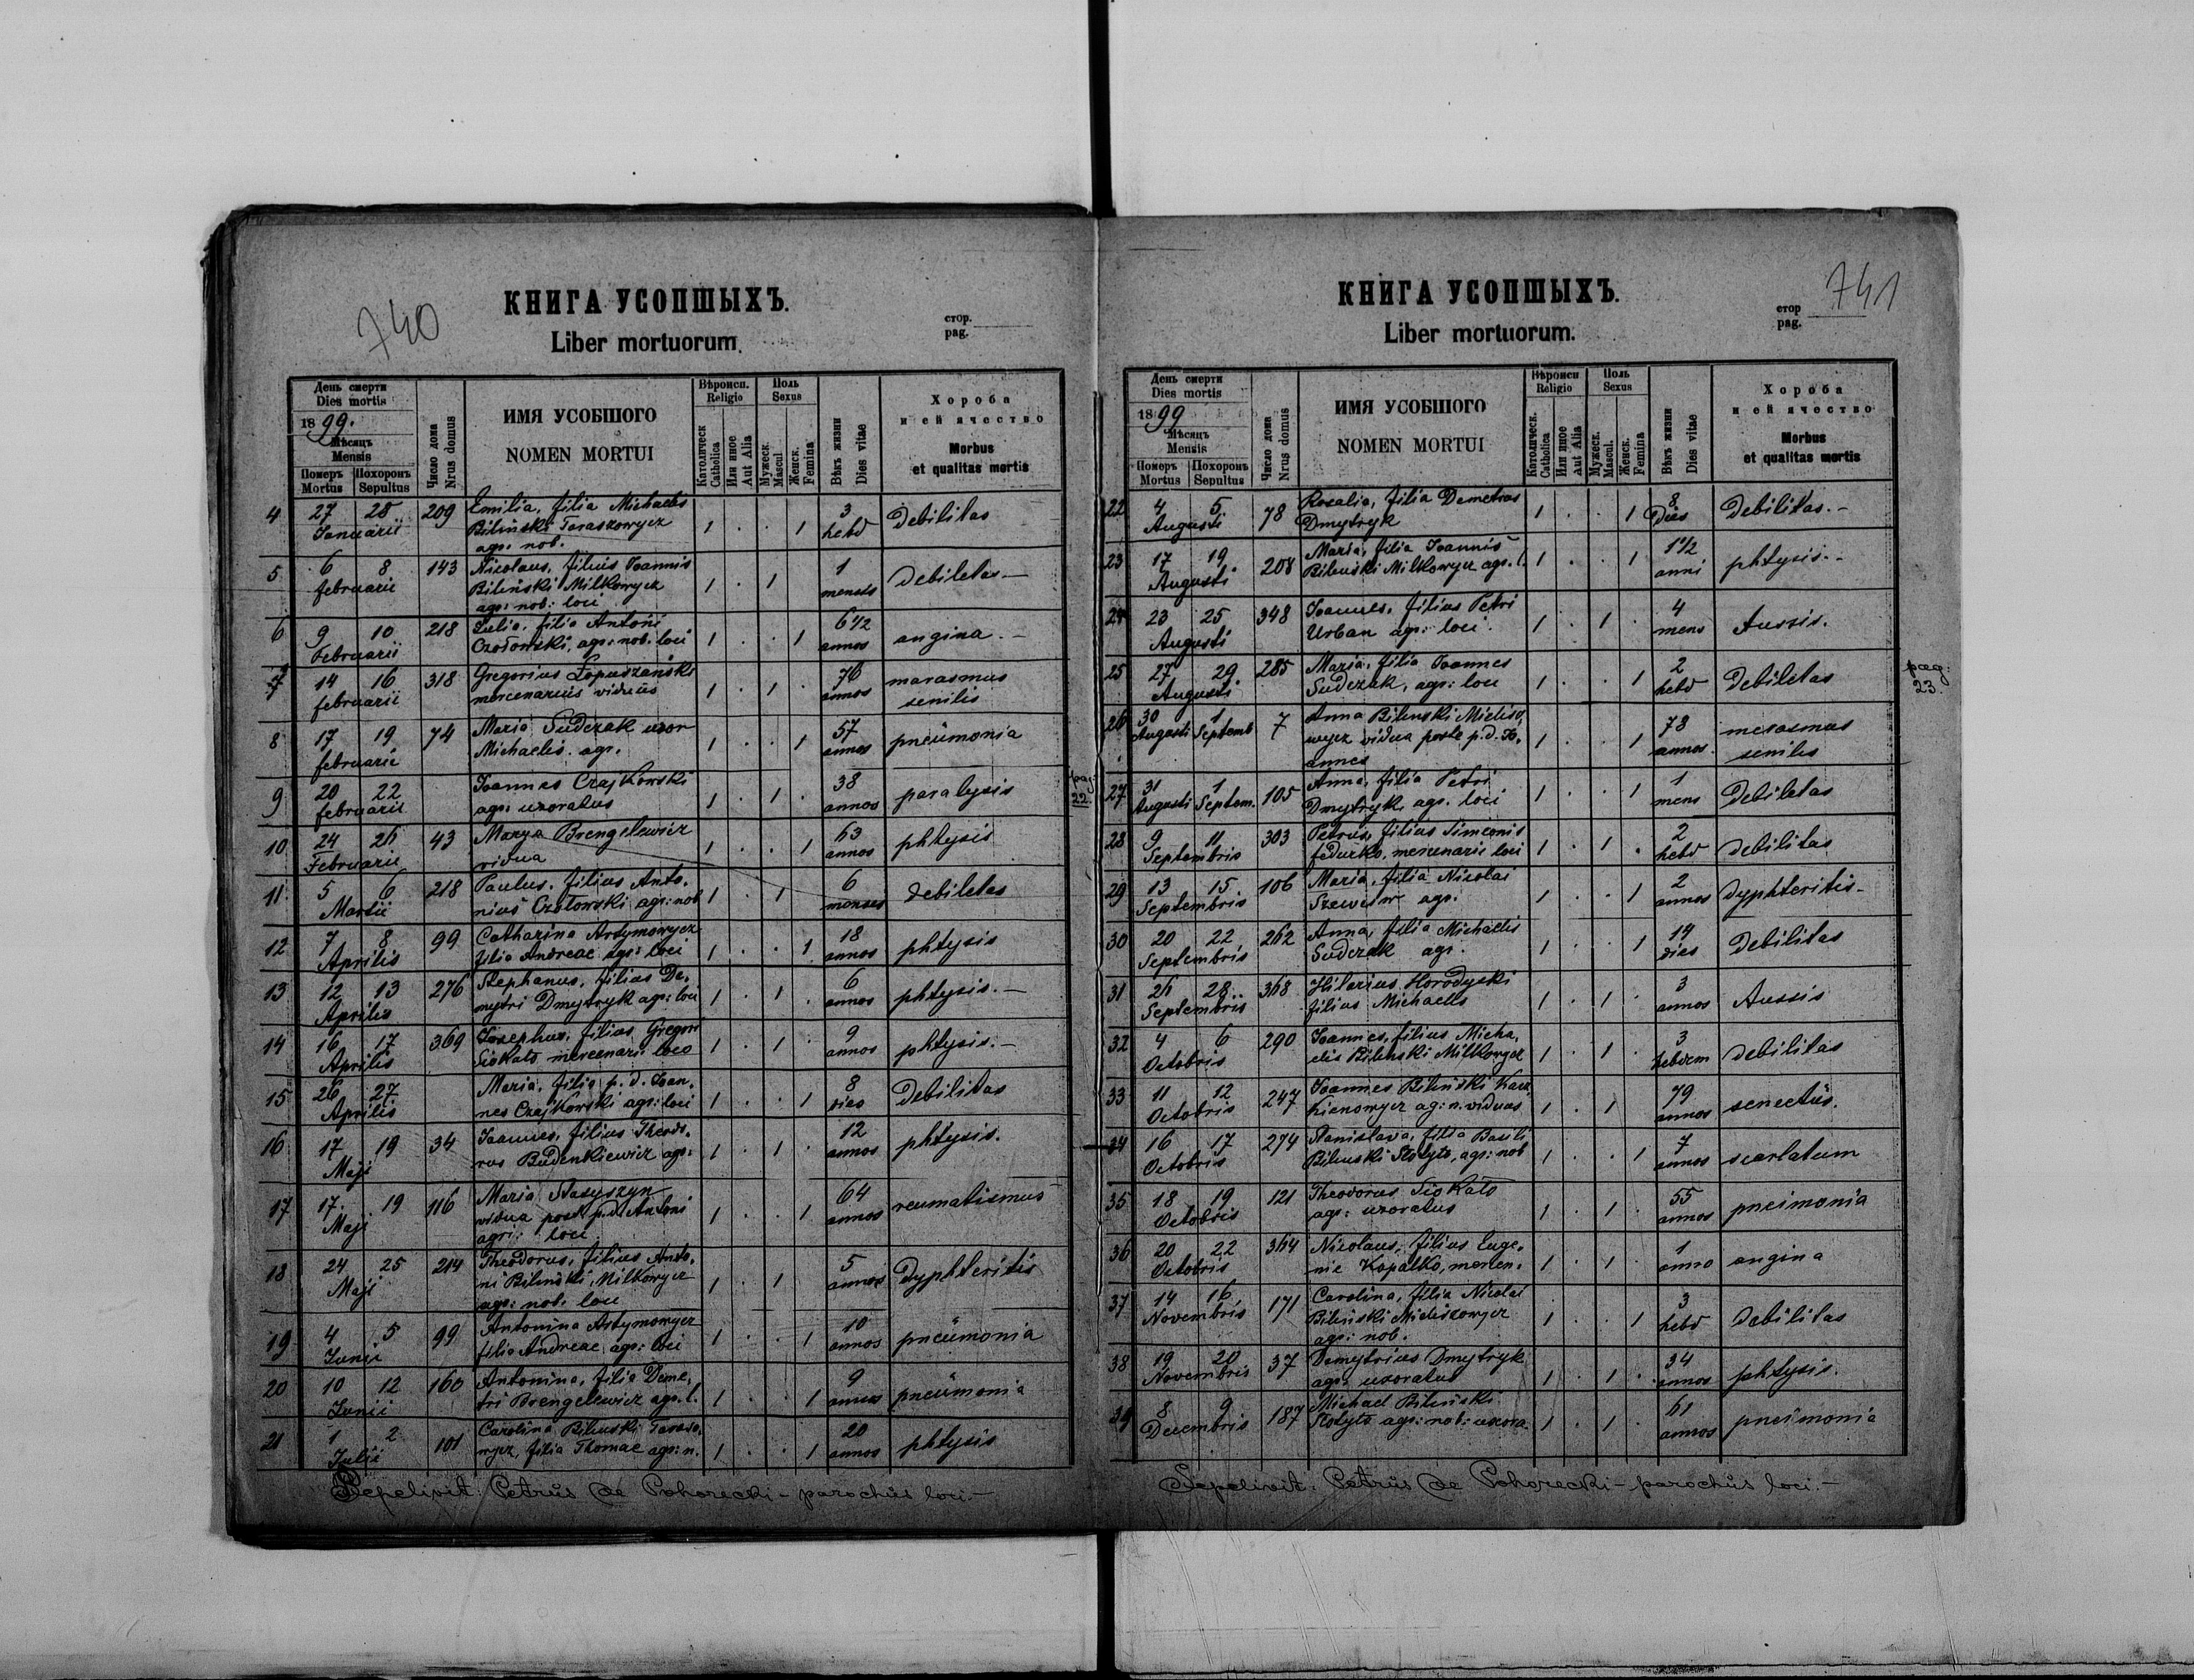 740
КНИГА УСОПШЫХЪ.
Liber mortuorum.
стор.
pag.
День смерти
Dies mortis
1899.
Мѣсяцъ
Mensis
Померъ Похоронъ
Mortus Sepultus
Число дома
Nrus domus
ИМЯ УСОБШОГО
NOMEN MORTUI
Вѣроисп.
Religio
Католическ
Catholica
Или иное
Aut Alia
Поль
Sexus
Мужеск.
Mascul
Женск.
Femina
Вѣкъ жизни
Dies vitae
Хороба
и ей ячество
Morbus
et qualitas mortis
4 27 28 Januarii 209 Emilia, filia Michaelis
Biliński Taraszowycz
agr. nob. 1 . . 1 3 hebd Debilitas
5 6 8 februarii 143 Nicolaus, filius Joannis
Biliński Milkowycz
agr: nob: loci 1 . 1 1 mensis Debilitas —
6 9 10 Februarii 218 Julia, filia Antoni
Czołowski, agr: nob: loci 1 . . 1 6 1/2 annos angina. —
7 14 16 februarii 318 Gregorius Łopuszański
mercenarius viduus 1 . 1 . 76 annos marasmus
senilis
8 17 19 februarii 74 Maria Sudczak uxor
Michaelis. agr. 1 . . 1 57 annos pneumonia
9 20 22 februarii Joannes Czajkowski
agr: uxoratus 1 . 1 . 38 annos paralysis
pag:
22.
10 24 26 Februarii 43 Marya Brengelewicz
vidua 1 . . 1 63 annos phtysis
11. 5 6 Martii 218 Paulus. filius Anto.
nius Czołowski agr: nob 1 . 1 6 menses debiletas
12 7 8 Aprilis 99 Catharina Artymowycz
filia Andreae agr: loci 1 . . 1 18 annos phtysis
13 12 13 Aprilis 276 Stephanus, filius De,
mytri Dmytryk agr: loci 1 . 1 . 6 annos phtysis. —
14 16 17 Aprilis 369 Josephus, filius Gregori
Siokało mercenari: loco 1 . 1 . 9 annos phtysis. —
15 26 27 Aprilis Maria. filia p. d. Joan,
nes Czajkowski agr: loci 1 . . 1 8 dies Debilitas
16 17 19 Maji 34 Joannes, filius Theodo.
rus Budenkiewicz agr: 1 . 1 . 12 annos phtysis.
17 17. 19 Maji 116 Maria Stasyszyn
vidua post p. d. Antoni
agri: loci 1 . . 1 64 annos reumatismus
18 24 25 Maji 214 Theodorus, filius Anto.
ni Biliński, Milkowycz
agr: nob. loci 1 . 1 5 annos Dyphteritis
19 4 5 Junii 99 Antonina Artymowycz
filia Andreae agr: loci 1 . . 1 10 annos pneumonia
20 10 12 Junii 160 Antonina, filia Deme,
tri Brengelewicz agr. l. 1 . . 1 9 annos pneumonia
21 1 2 Julii 101 Carolina Bilinski Taraso,
wycz, filia Thomae agr: n. 1 . . 1 20 annos phtysis
Sepelivit: Petrus de Pohorecki — parochus loci. —
741
КНИГА УСОПШЫХЪ.
Liber mortuorum.
стор
pag.
День смерти
Dies mortis
1899
Мѣсяцъ
Mensis
Померъ Похоронъ
Mortus Sepultus
Число дома
Nrus domus
ИМЯ УСОБШОГО
NOMEN MORTUI
Вѣроисп
Religio
Католическ.
Catholica
Или иное
Aut Alia
Поль
Sexus
Мужеск.
Mascul.
Женск.
Femina
Вѣкъ жизни
Dies vitae
Хороба
и ей ячество
Morbus
et qualitas mortis
22 4 5. Augusti 78 Rosalia, filia Demetrus
Dmytryk 1 . . 1 8 Dies Debilitas. —
23 17 19 Augusti 208 Maria, filia Joannis
Bilenski Milkowycz agr. l. 1 . . 1 1 1/2 anni phtysis. —
24 23 25 Augusti 348 Joannes. filius Petri
Urban agr: loci. 1 . 1 . 4 mens tussis.
25 27 29. Augusti 285 Maria. filia Joannes
Sudczak, agr: loci 1 . . 1 2 hebd Debiletas
pag:
23.
26 30 Augusti 1 Septemb 7 Anna Bilenski Mieliso,
wycz vidua poste p. d. Jo,
annes 1 . . 1 78 annos. merasmus
senilis
27 31 Augusti 1 Septem. 105 Anna, filia Petri
Dmytryk, agr. loci 1 . . 1 1 mens Debiletas
28 9 11 Septembris 303 Petrus, filius Simeonis
fedurko, mercenaris loci 1 . 1 . 2 hebd debilitas
29 13 15 Septembris 106 Maria, filia Nicolai
agr. 1 . . 1 2 annos Dyphteritis —
30 20 22 Septembris 262 Anna, filia Michaelis
Sudczak agr. 1 . . 1 14 dies Debilitas
31 26 28 Septembris 368 Hilarius Horodyski
filius Michaelis 1 . 1 . 3 annos tussis
32 4 6 Octobris 290 Joannes, filius Micha,
elis Bilenski Milkowycz 1 . 1 . 3 hebdem debilitas
33 11 12 Octobris 247 Joannes Biliński
agr: n. viduus 1 . 1 79 annos senectus.
34 16 17 Octobris 274 Stanislava, filia Basili
Bilinski Stołyto, agr: nob 1 . . 1 7 annos scarlatum
35 18 19 Octobris 121 Theodorus Siokało
agr: uxoratus 1 . 1 . 55 annos pneimonia
36 20 22 Octobris 364 Nicolaus, filius Euge,
nie Kopalko, mercen. 1 . 1 . 1 anno angina
37 14 16 Novembris 171 Carolina, filia Nicolai
Biliński Mieliszowycz
agr: nob. 1 . . 1 3 hebd Debilitas
38 19 20 Novembris 37 Demytrius Dmytryk
agr: uxoratus 1 . 1 . 34 annos phtysis.
39 8 9 Decembris 187 Michael Biliński
Stołyto agr: nob: uxora. 1 . 1 61 annos pneimonia
Sepelivit: Petrus de Pohorecki — parochus loci. —